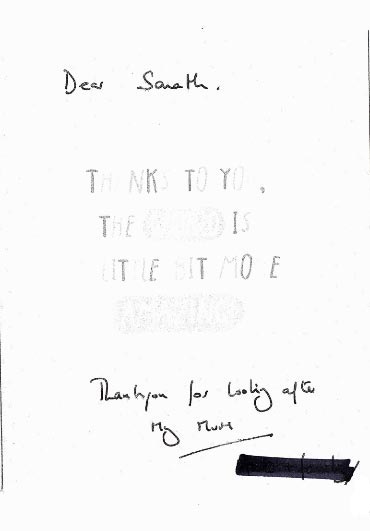 Dear Sarath.
THANKS TO YOU,
THE IS
LITTLE BIT MORE
Thankyou for looking after
My Mum